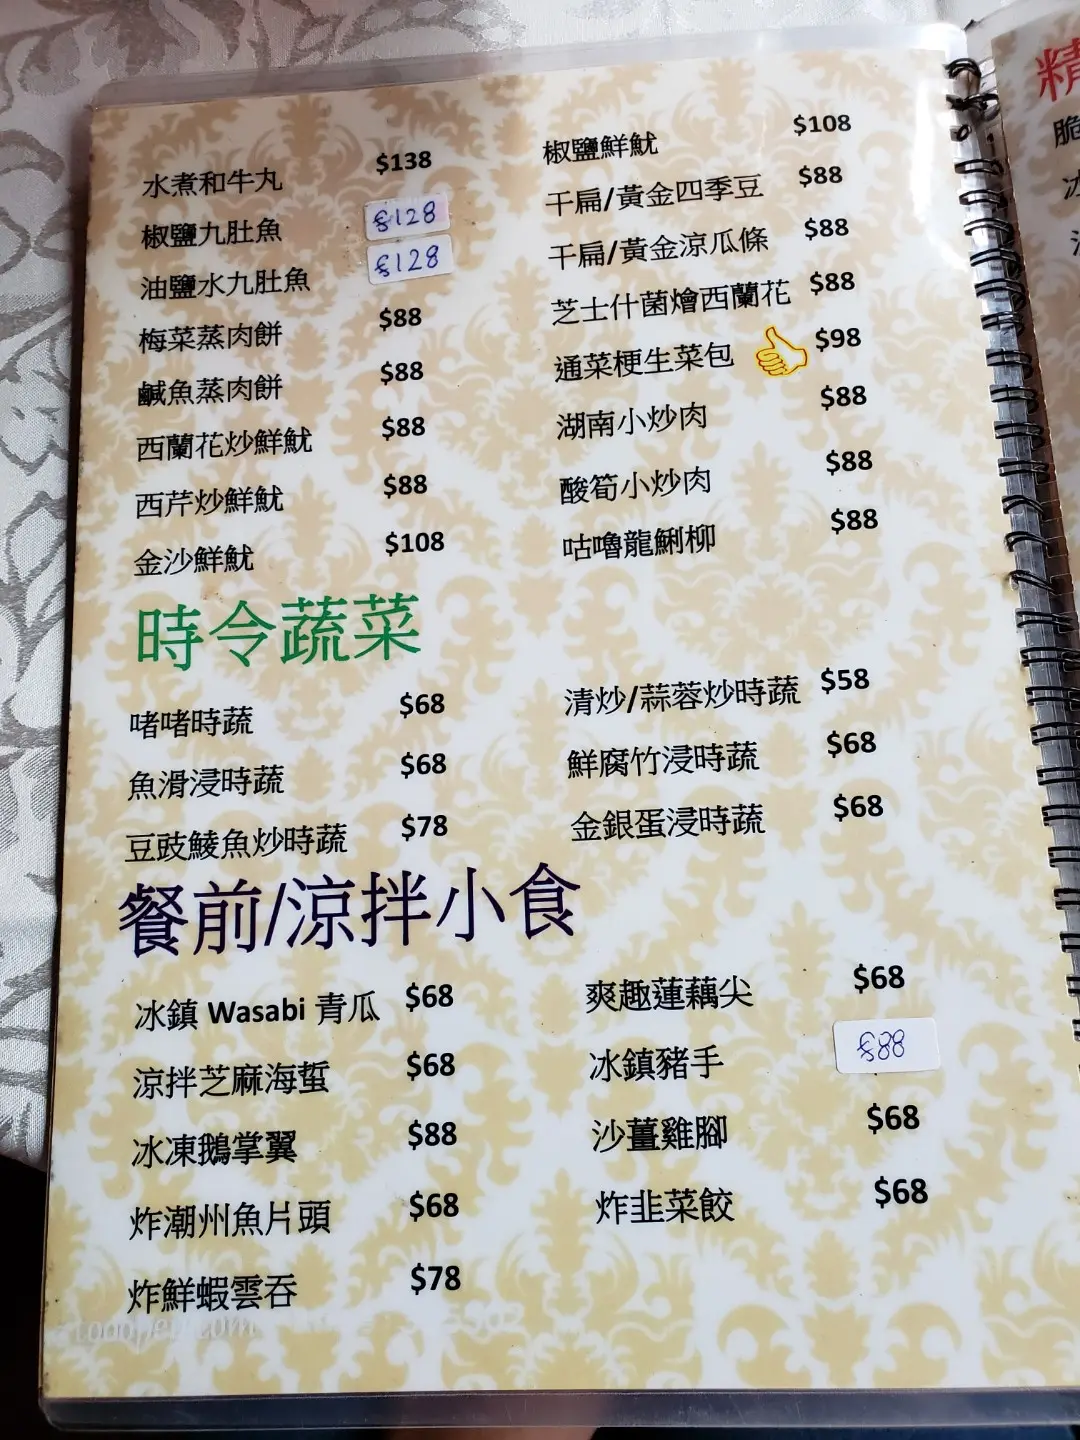 水煮和牛丸 $138
椒鹽九肚魚 $128
油鹽水九肚魚 $128
梅菜蒸肉餅 $88
鹹魚蒸肉餅 $88
西蘭花炒鮮魷 $88
西芹炒鮮魷 $88
金沙鮮魷 $108
椒鹽鮮魷 $108
干扁/黃金四季豆 $88
干扁/黃金涼瓜條 $88
芝士什菌燴西蘭花 $88
通菜梗生菜包 $98
湖南小炒肉 $88
酸筍小炒肉 $88
咕嚕龍脷柳 $88
時令蔬菜
啫啫時蔬 $68
魚滑浸時蔬 $68
豆豉鯪魚炒時蔬 $78
清炒/蒜蓉炒時蔬 $58
鮮腐竹浸時蔬 $68
金銀蛋浸時蔬 $68
餐前/涼拌小食
冰鎮 Wasabi 青瓜 $68
涼拌芝麻海蜇 $68
冰凍鵝掌翼 $88
炸潮州魚片頭 $68
炸鮮蝦雲吞 $78
爽趣蓮藕尖 $68
冰鎮豬手 $88
沙薑雞腳 $68
炸韭菜餃 $68
精
脆